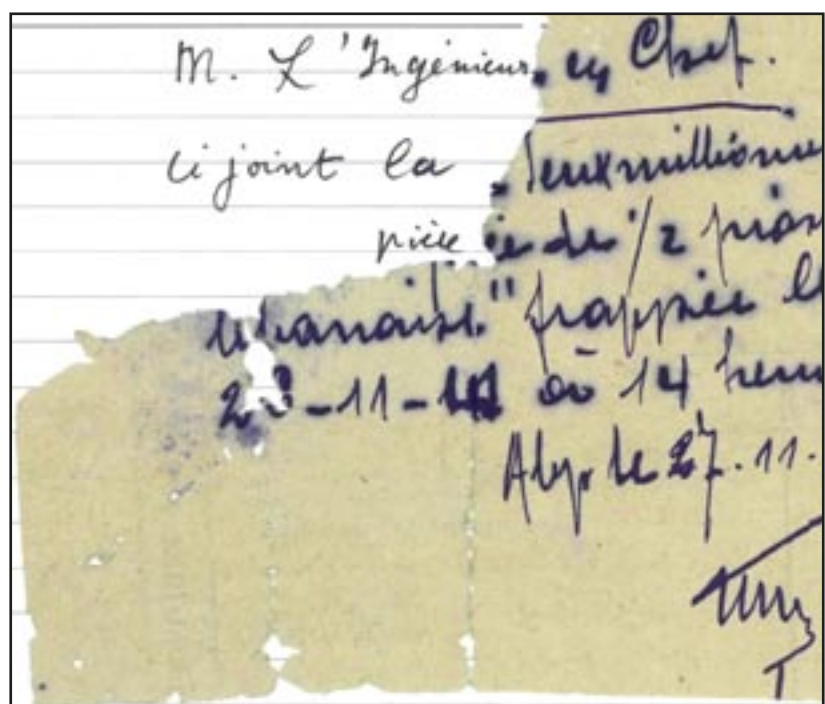 M. L'Ingénieur en Chef.
Ci joint la deuxmillionu
pièce de 1/2 pias
libanaise" frappée le
à 14 heu
Alep. le 27.11.